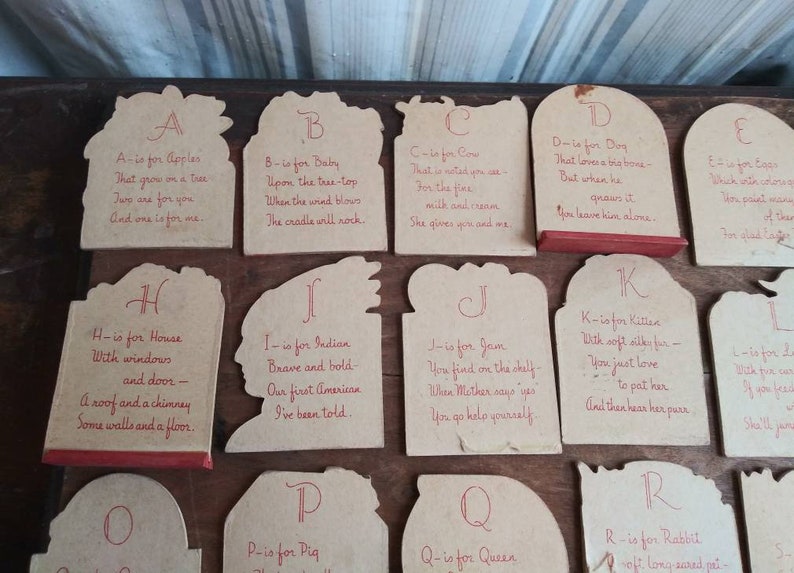 A
A-is for Apples
That grow on a tree
Two are for you
And one is for me.
B
B-is for Baby
Upon the tree-top
When the wind blows
The cradle will rock.
C
C-is for Cow
That is noted you see-
For the fine
milk and cream
She gives you and me.
D
D-is for Dog
That loves a big bone-
But when he
gnaws it
You leave him alone.
E
E-is for Eggs
Which with colors
You paint many
of them
For glad Easter
H
H-is for House
With windows
and door-
A roof and a chimney
Some walls and a floor.
I
I-is for Indian
Brave and bold-
Our first American
I've been told.
J
J-is for Jam
You find on the shelf-
When Mother says "yes"
You go help yourself.
K
K-is for Kitten
With soft silky fur-
You just love
to pat her
And then hear her purr
L
L-is for
With fur
If you feed
She'll jump
O
P
P-is for Pig
Q
Q-is for Queen
R
R-is for Rabbit
soft long-eared pet-
S-